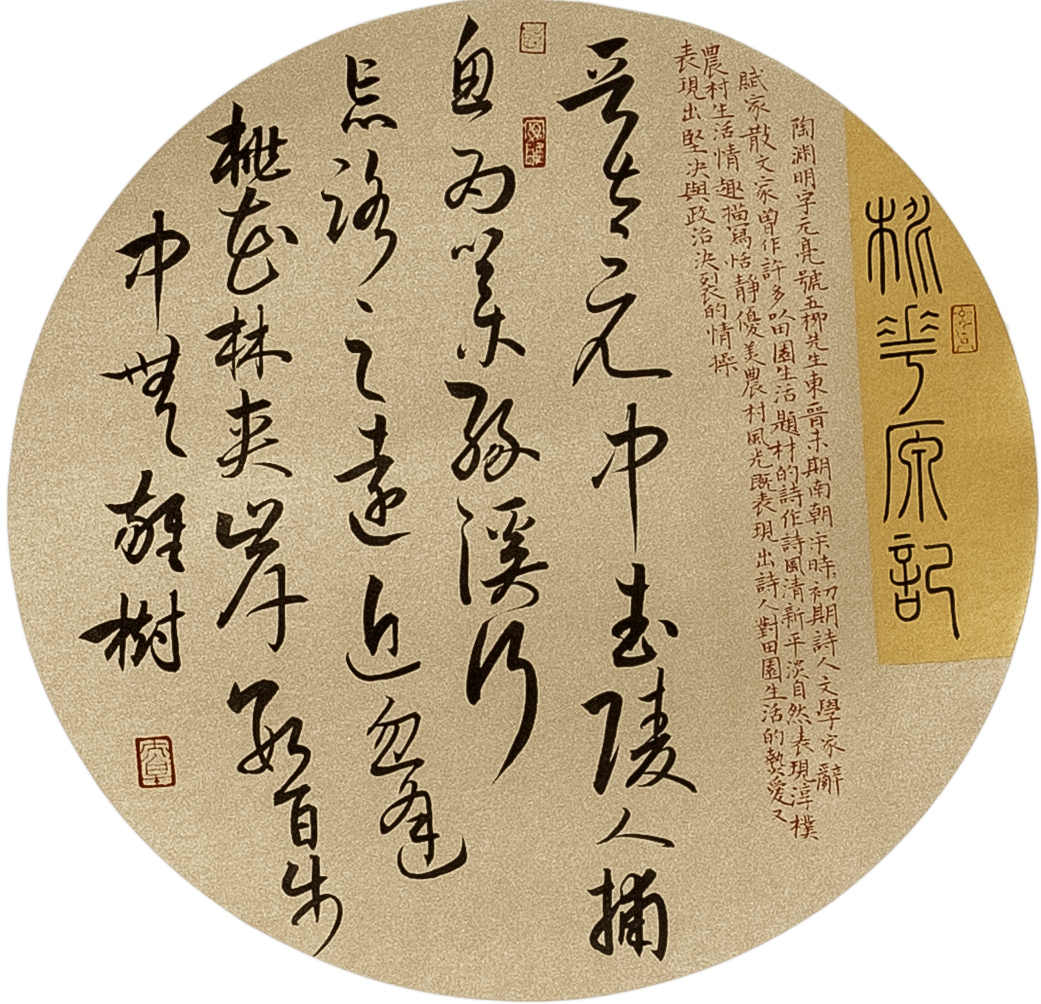 桃華原記
陶淵明字元亮號五柳先生東晉末期南朝宋時初期詩人文學家辭
賦家散文家曾作許多吟田園生活題材的詩作詩風清新平淡自然表現淳樸
農村生活情趣描寫恬靜優美農村風光既表現出詩人對田園生活的摯愛又
表現出堅决與政治决裂的情操
晉太元中武陵人捕
魚為業緣溪行
忘路之遠近忽逢
桃花林夾岸數百步
中無雜樹